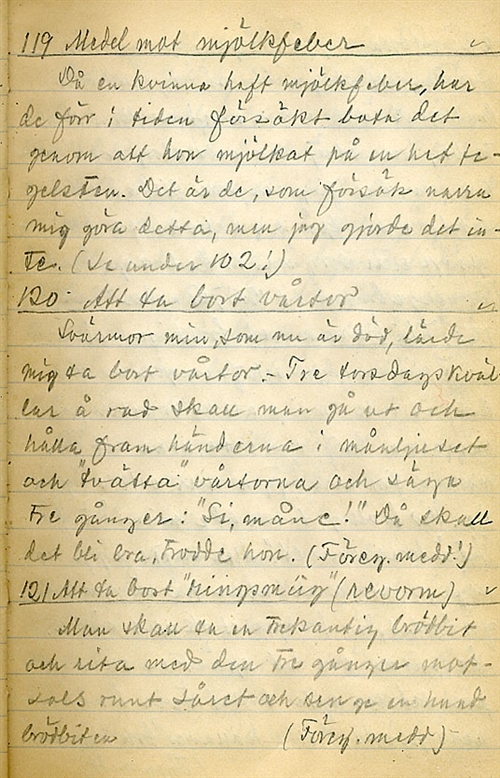 119 Medel mot mjölkfeber
Då en kvinna haft mjölkfeber, har
de förr i tiden försökt bota det
genom att hon mjölkat på en het te-
gelsten. Det är de, som försök narra
mig göra detta, men jag gjorde det in-
te. (Se under 102!)
120 Att ta bort vårtor
Svärmor min, som nu är död, lärde
mig ta bort vårtor. - Tre torsdagskväl
lar å rad skall man gå ut och
hålla fram händerna i månljuset
och "tvätta" vårtorna och säga
tre gånger: "Si, måne!" Då skall
det bli bra, trodde hon. (Föreg. medd!)
121 Att ta bort "ringsmüg" (revorm)
Man skall ta en trekantig brödbit
och rita med den tre gånger mot-
sols runt såret och sen ge en hund
brödbiten (Föreg. medd)